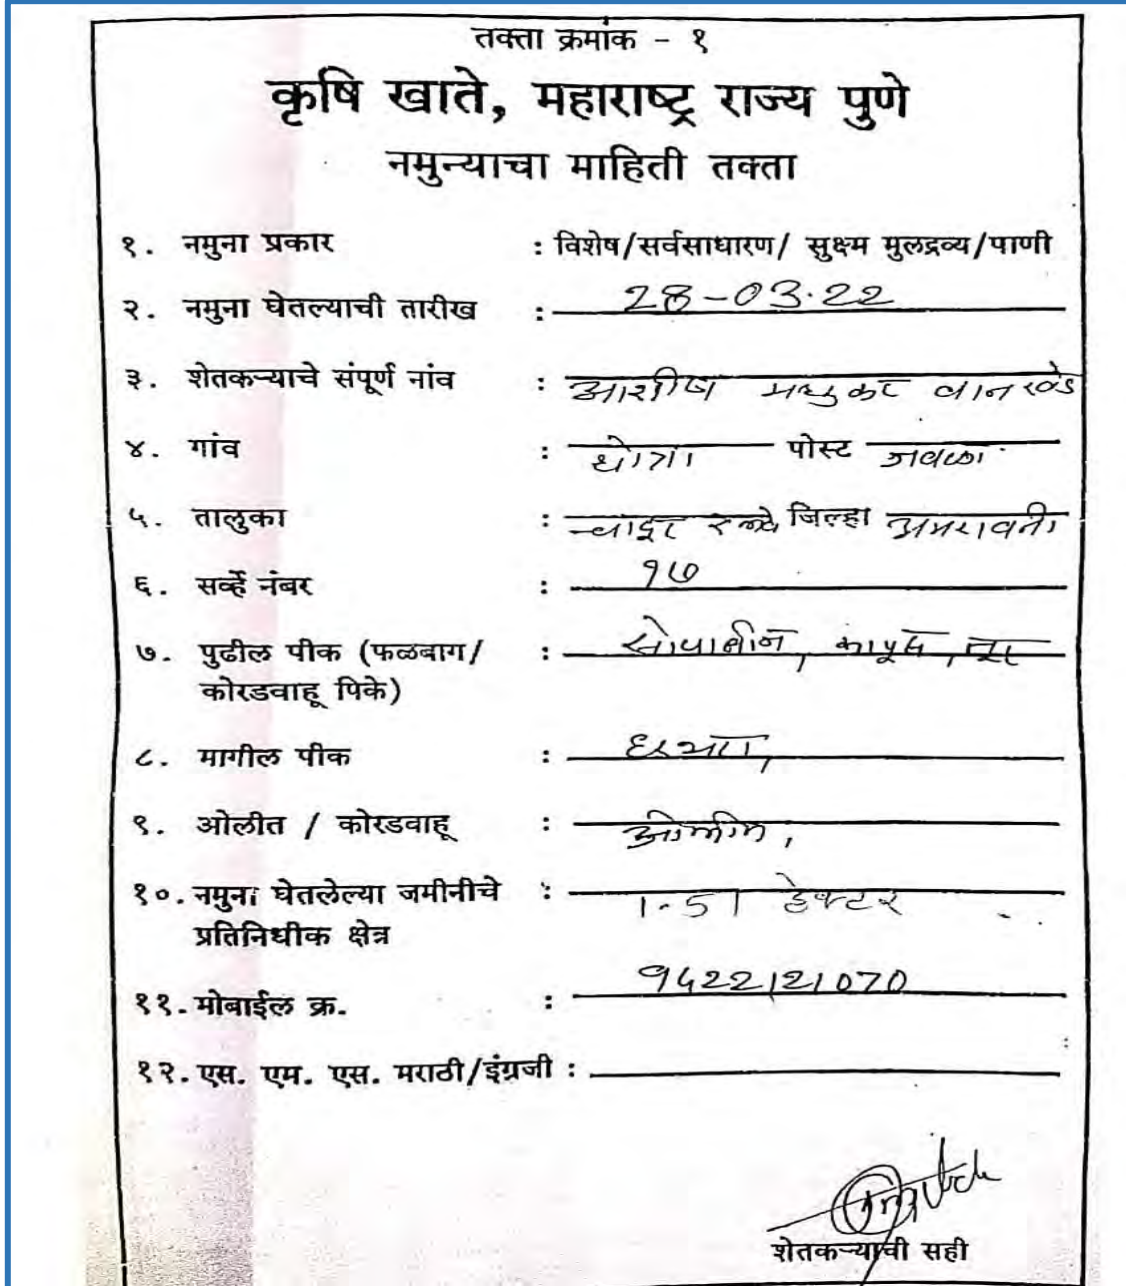 तक्ता क्रमांक - १
कृषि खाते, महाराष्ट्र राज्य पुणे
नमुन्याचा माहिती तक्ता
१. नमुना प्रकार : विशेष/सर्वसाधारण/ सुक्ष्म मुलद्रव्य/पाणी
२. नमुना घेतल्याची तारीख : 28-03.22
३. शेतकऱ्याचे संपूर्ण नांव : आशीष मधुकर वानखडे
४. गांव : धोत्रा पोस्ट जवळा
५. तालुका : चांदूर रेल्वे जिल्हा अमरावती
६. सर्व्हे नंबर : १७
७. पुढील पीक (फळबाग/ : सोयाबीन, कापूस, तूर
कोरडवाहू पिके)
८. मागील पीक : हरभरा,
९. ओलीत / कोरडवाहू : ओलीत,
१०. नमुना घेतलेल्या जमीनीचे : 1.51 हेक्टर
प्रतिनिधीक क्षेत्र
११. मोबाईल क्र. : 9422121070
१२. एस. एम. एस. मराठी/इंग्रजी :
शेतकऱ्याची सही